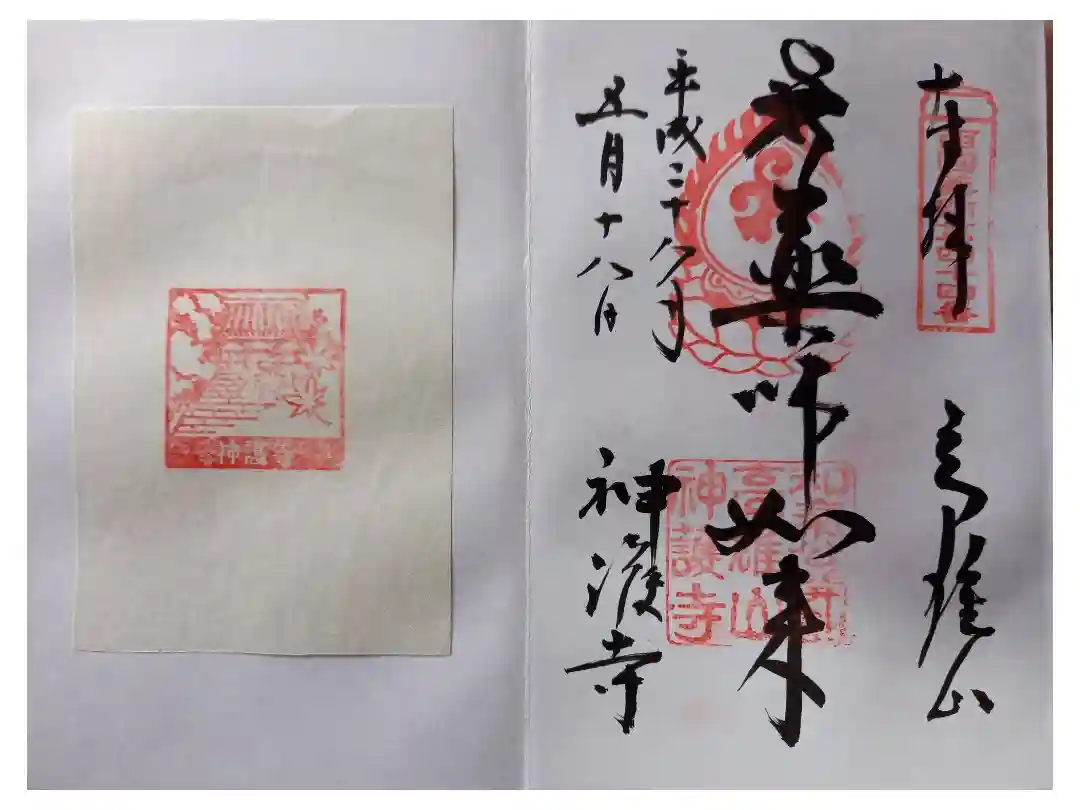 奉拝
高雄山
薬師如来
高雄山
神護寺
平成二十八年
五月十八日
神護寺
神護寺